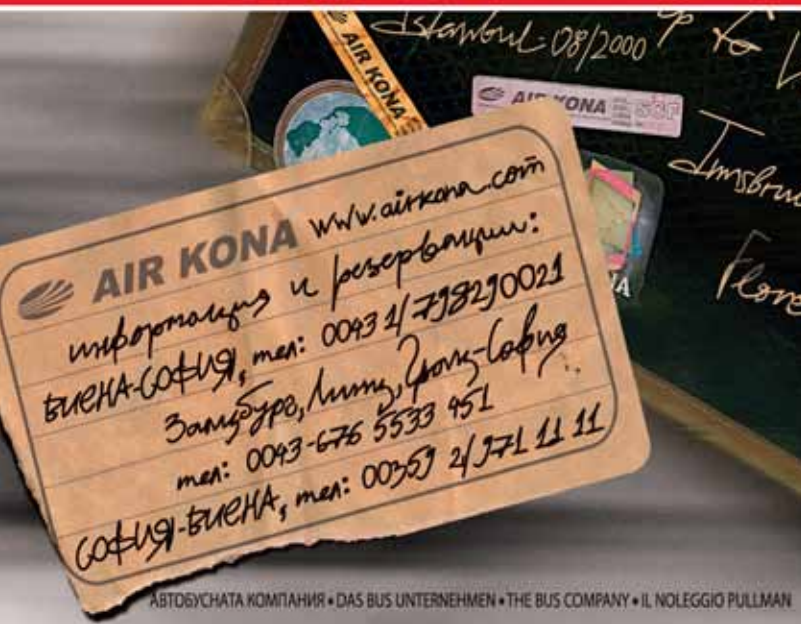 Istanbul 08/2000
AIR KONA
AIR KONA
Innsbru
Flore
AIR KONA www.airkona.com
информация и резервации:
ВИЕНА-СОФИЯ, тел: 0043 1/798290021
Залцбург, Линц, Грац-София
тел: 0043-676 5533 451
СОФИЯ-ВИЕНА, тел: 00359 2/971 11 11
АВТОБУСНАТА КОМПАНИЯ • DAS BUS UNTERNEHMEN • THE BUS COMPANY • IL NOLEGGIO PULLMAN